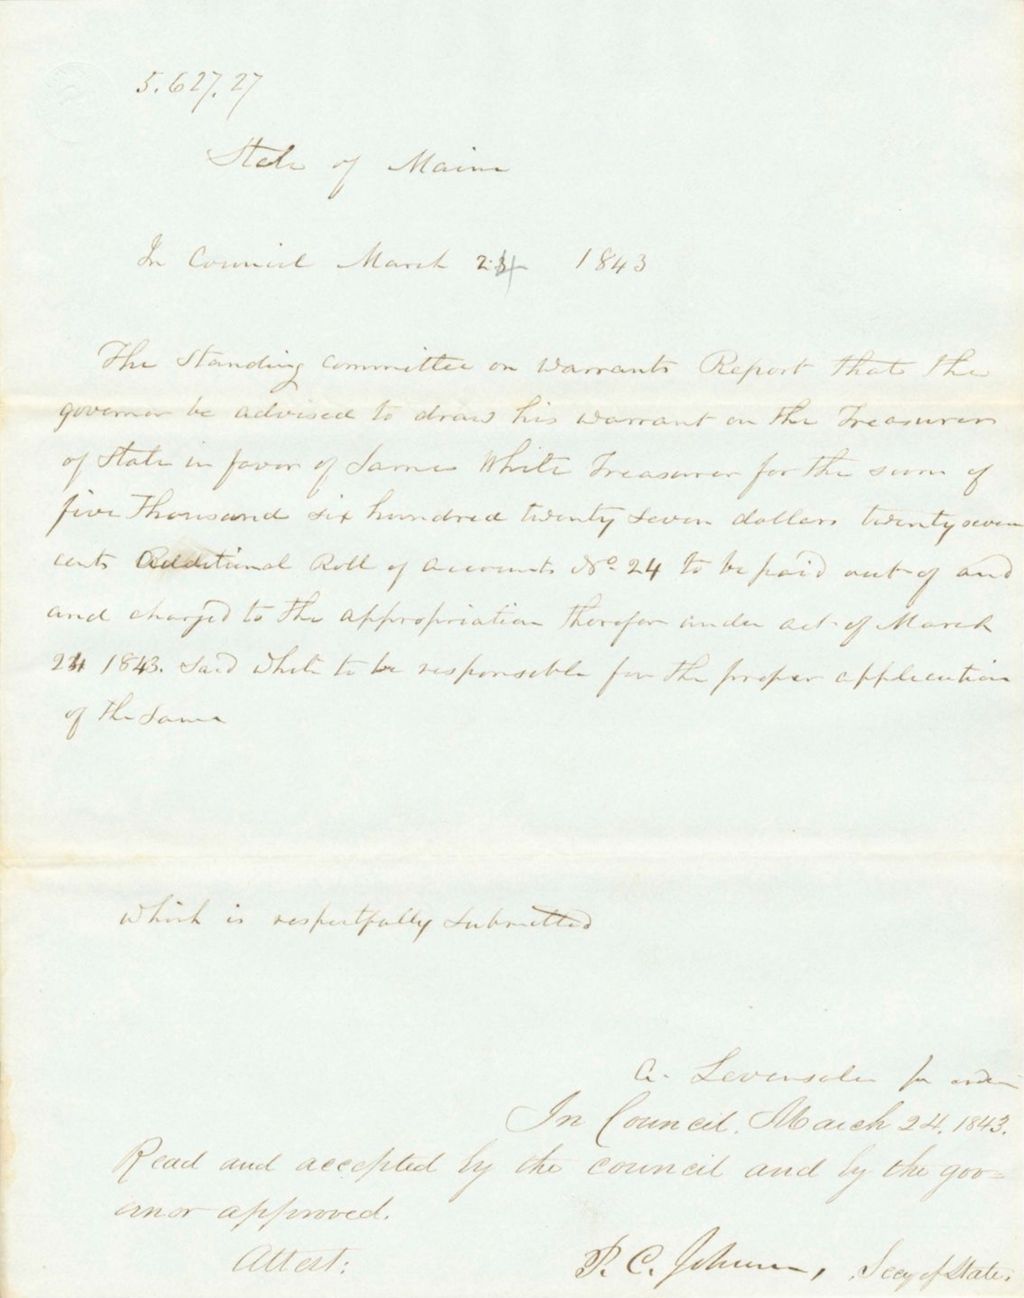 5.627.27
State of Maine
In Council March 24 1843
The Standing Committee on Warrants Report that the
governor be advised to draw his warrant on the Treasurer
of State in favor of James White Treasurer for the sum of
five Thousand six hundred twenty seven dollars twenty seven
cents Additional Roll of accounts No. 24 to be paid out of and
and charged to the appropriation therefor under act of March
24 1843. Said White to be responsible for the proper application
of the Same
Which is respectfully submitted
A. Levensaler per order
In Council, March 24, 1843.
Read and accepted by the council and by the gov=
ernor approved.
Attest:
P. C. Johnson, Secy of State.